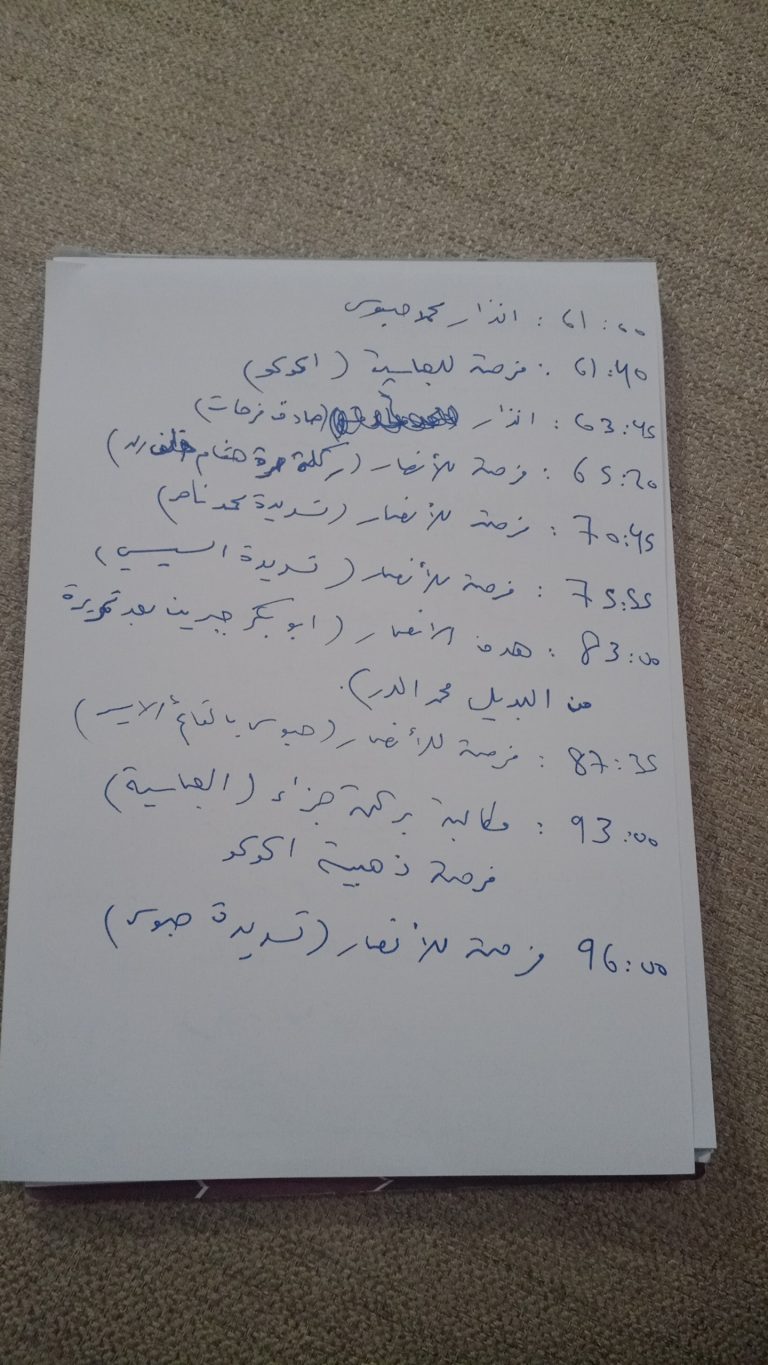 61:00 : انذار محمد حبوس
61:40 : فرصة للعباسية (اكوكو)
63:45 : انذار (صادق فرحات)
65:20 : فرصة للأنصار (ركلة حرة هشام خلف الله)
70:45 : فرصة للأنصار (تسديدة محمد ناصر)
75:55 : فرصة للأنصار (تسديدة السيسي)
83:00 : هدف الانصار (ابو بكر جبرينا بعد تمريرة
من البديل محمد الدر).
87:35 : فرصة للأنصار (حبوس بالقائم الايسر)
93:00 : مطالبة بركلة جزاء (العباسية)
فرصة ذهبية اكوكو
96:00 فرصة للأنصار (تسديدة حبوس)